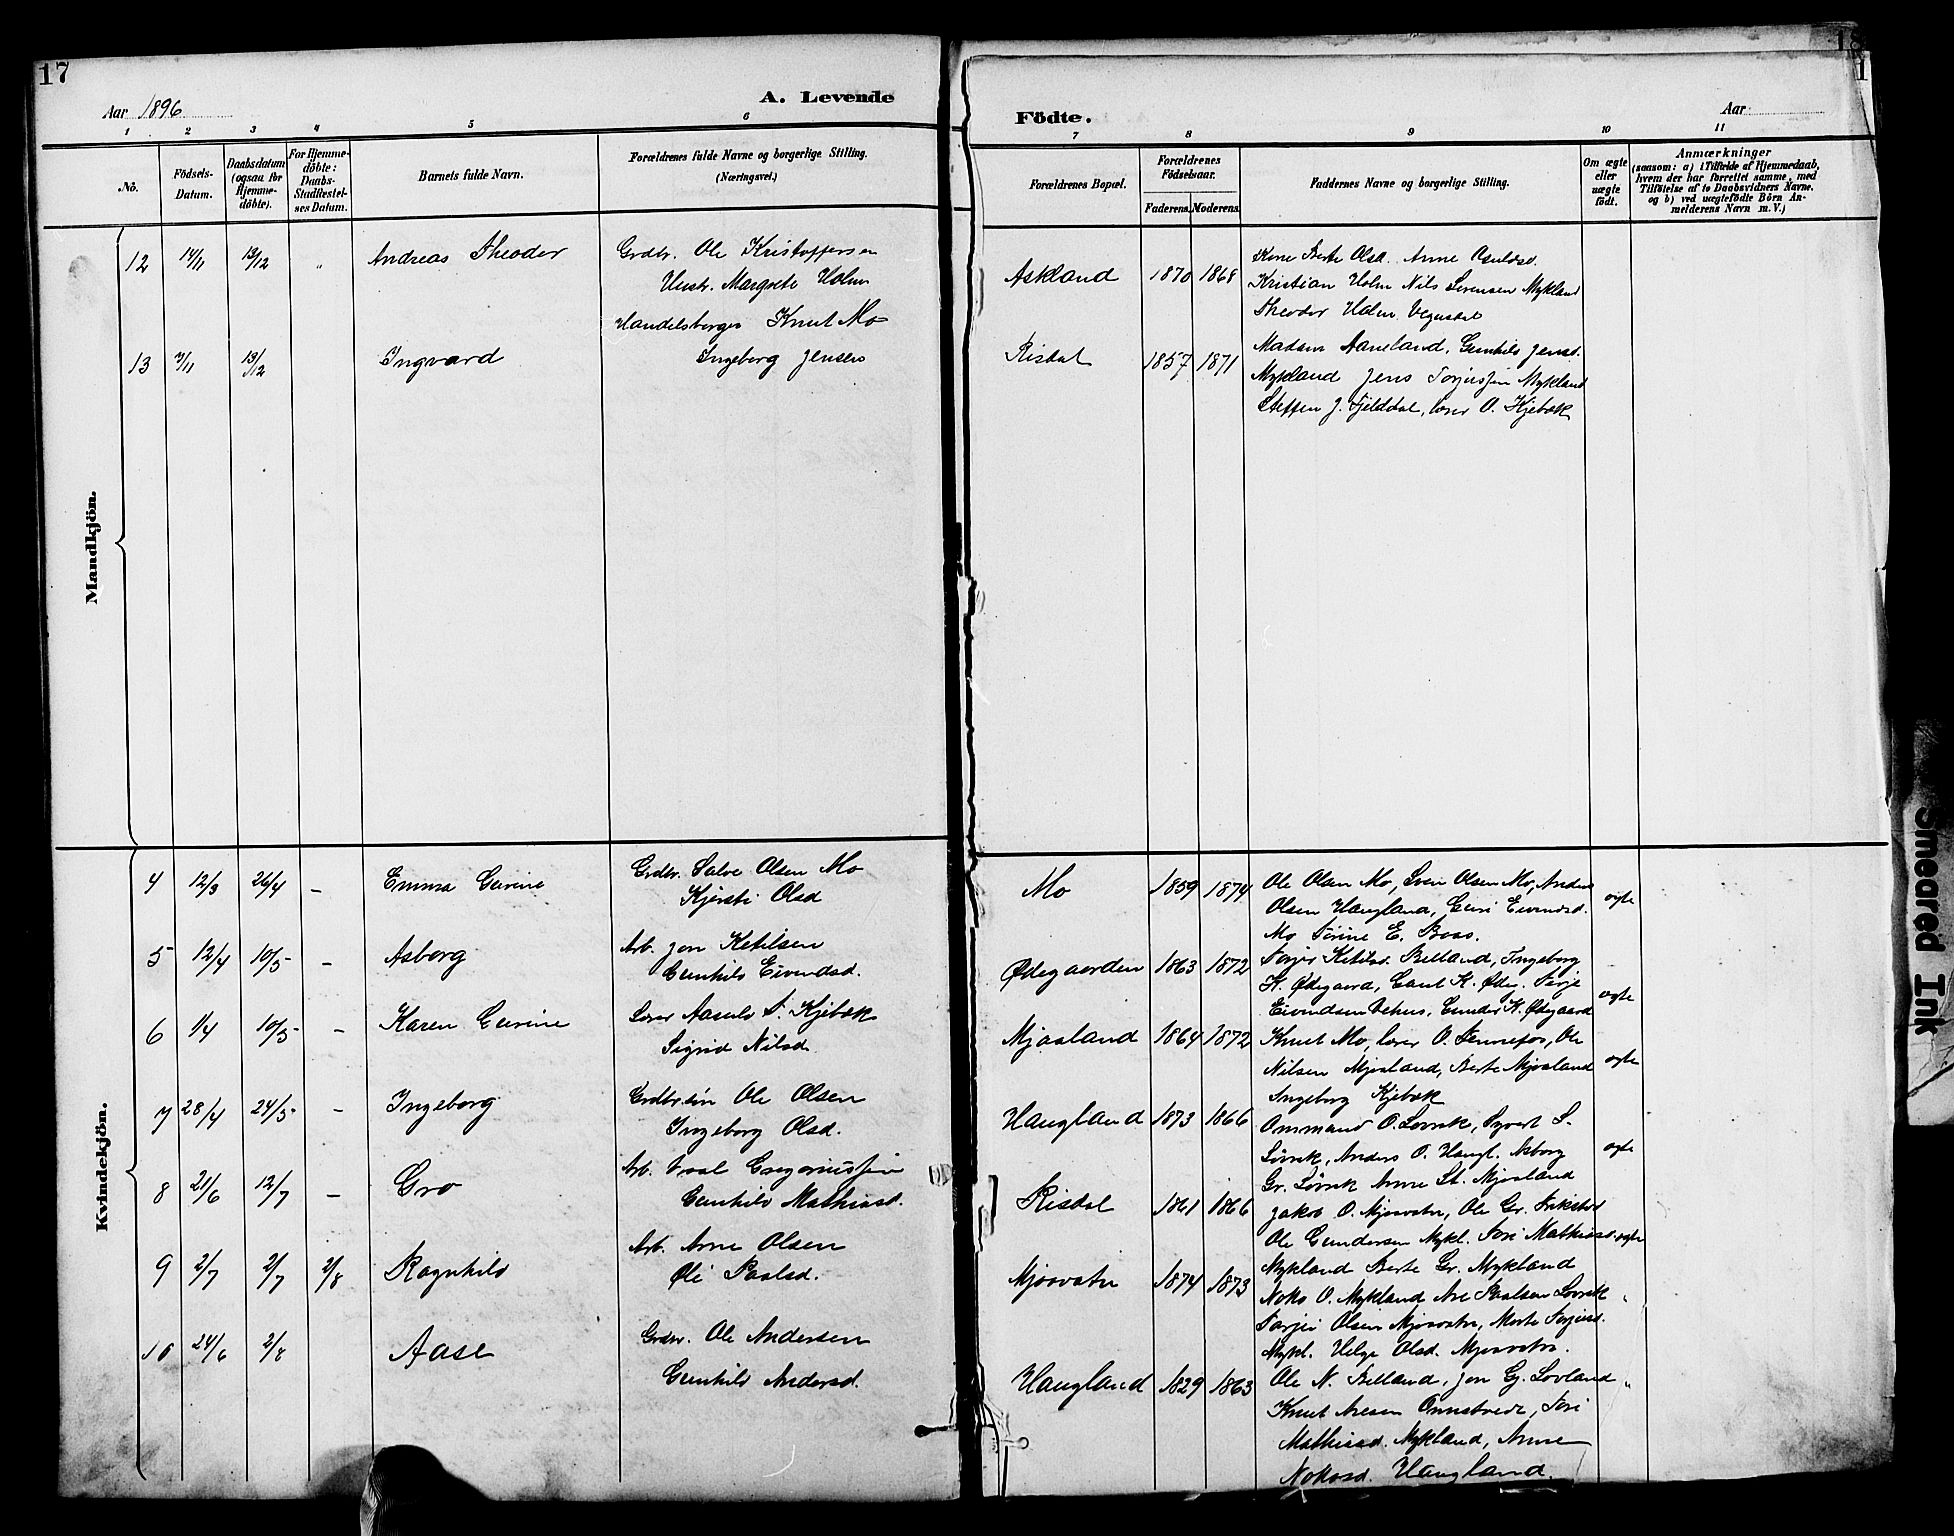 17
Aar 1896
A. Levende
1 2 3 4 5 6
No.
Födsels-Datum.
Daabsdatum (ogsaa for Hjemmedöbte).
For Hjemmedöbte: Daabs-Stadfæstelses Datum.
Barnets fulde Navn.
Forældrenes fulde Navne og borgerlige Stilling.
(Næringsvei.)
Mandkjön.
12 14/11 13/12 " Andreas Theodor
Grdbr. Ole Kristoffersen
Hustr. Margrete Holm
13 7/11 13/12 Ingvard
Handelsborger Knut Mo
Ingeborg Jensen
Kvindekjön.
4 12/3 26/4 – Emma Gurine
Grdbr. Salve Olsen Mo
Kjersti Olsd
5 12/4 10/5 – Asborg
Arb. Jon Ketilsen
Gunhild Eivindsd.
6 1/4 10/5 – Karen Gurine
Lærer Aasuld O. Kjebæk
Sigrid Nilsd.
7 28/4 24/5 – Ingeborg
Grdbr.søn Ole Olsen
Ingeborg Olsd.
8 21/6 12/7 – Gro
Arb. Gregoriussen
Gunhild Mathiasd.
9 2/7 2/7 2/8 Ragnhild
Arb. Arne Olsen
Paalsd.
10 24/6 2/8 Aase
Grdbr. Ole Andersen
Gunhild Andersd.
18
1
Födte.
Aar
7 8 9 10 11
Forældrenes Bopæl.
Forældrenes Födselsaar.
Faderens. Moderens.
Faddernes Navne og borgerlige Stilling.
Om ægte eller uægte födt.
Anmærkninger
(saasom: a) i Tilfælde af Hjemmedaab,
hvem der har forrettet samme, med
Tilföielse af to Daabsvidners Navne.
og b) ved uægtefödte Börn An-
melderens Navn m. V.)
Askland 1870 1868
Kone Berte Olsd. Anne
Kristian Holm Nils Sørensen Mykland
Theodor Holm Vegusdal
Risdal 1857 1871
Madam Aaneland, Gunhild Jensd.
Mykland Jens Torjussen Mykland
Steffen J. Fjelddal, lærer O. Kjebæk
Mo 1859 1874
Ole Olsen Mo, Sven Olsen Mo, Anders
Olsen Haugland, Guri Eivindsd.
Mo Torine E. Boas.
ægte
Ødegaarden 1863 1872
Torjer Ketilsd. Belland, Ingeborg
K. Ødegaard, K. Øde. Terje
Eivindsen Vehus, Gunder K. Ødegaard
ægte
Mjaaland 1864 1872
Knut Mo, lærer O. Tennefos, Ole
Nilsen Mjaaland, Berte Mjaaland
Ingeborg Kjebæk
ægte
Haugland 1873 1866
Ommund O. Løvsk, Syvert S.
Løvsk, Anders O. Haugl. Asborg
Gr. Løvsk Anne St. Mjaaland
ægte
Risdal 1861 1866
Jakob O. Mjaavatn, Ole Gr.
Ole Gundersen Mykl. Tori Mathiasd.
Mykland Berte Gr. Mykland
ægte
Mjaavatn 1874 1873
O. Mykland Are Paalsen Løvsk
Torjei Olsen Mjaavatn, Marte Torjusd.
Mykl. Helge Olsd. Mjaavatn.
"
Haugland 1829 1863
Ole N. Belland, Jon Gj. Lovland
Knut Aresen Omnstvedt, Tori
Mathiasd. Mykland, Anne
Haugland.
"
Smeared Ink